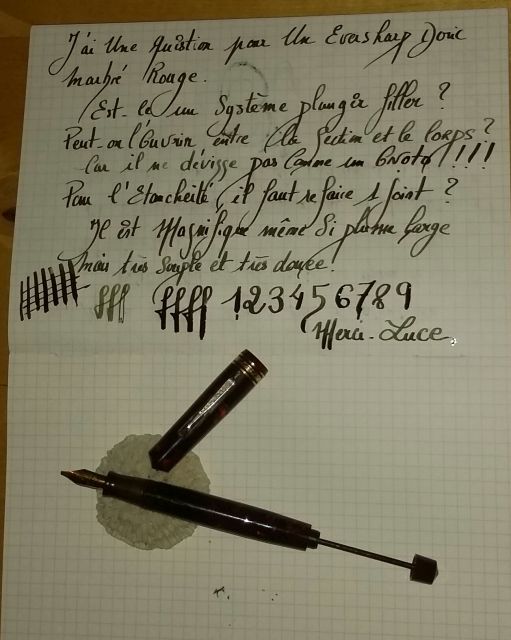 J'ai Une question pour Un Eversharp Doric
marbré Rouge.
Est-ce un Système plunger filler ?
Peut-on l'ouvrir entre la Section et le corps ?
Car il ne dévisse pas comme un Onoto !!!!
Pour l'Etanchéité, il faut refaire 1 joint ?
Il est Magnifique même Si plume large
mais très souple et très douce.
fff ffff 123456789
Merci. Luce.